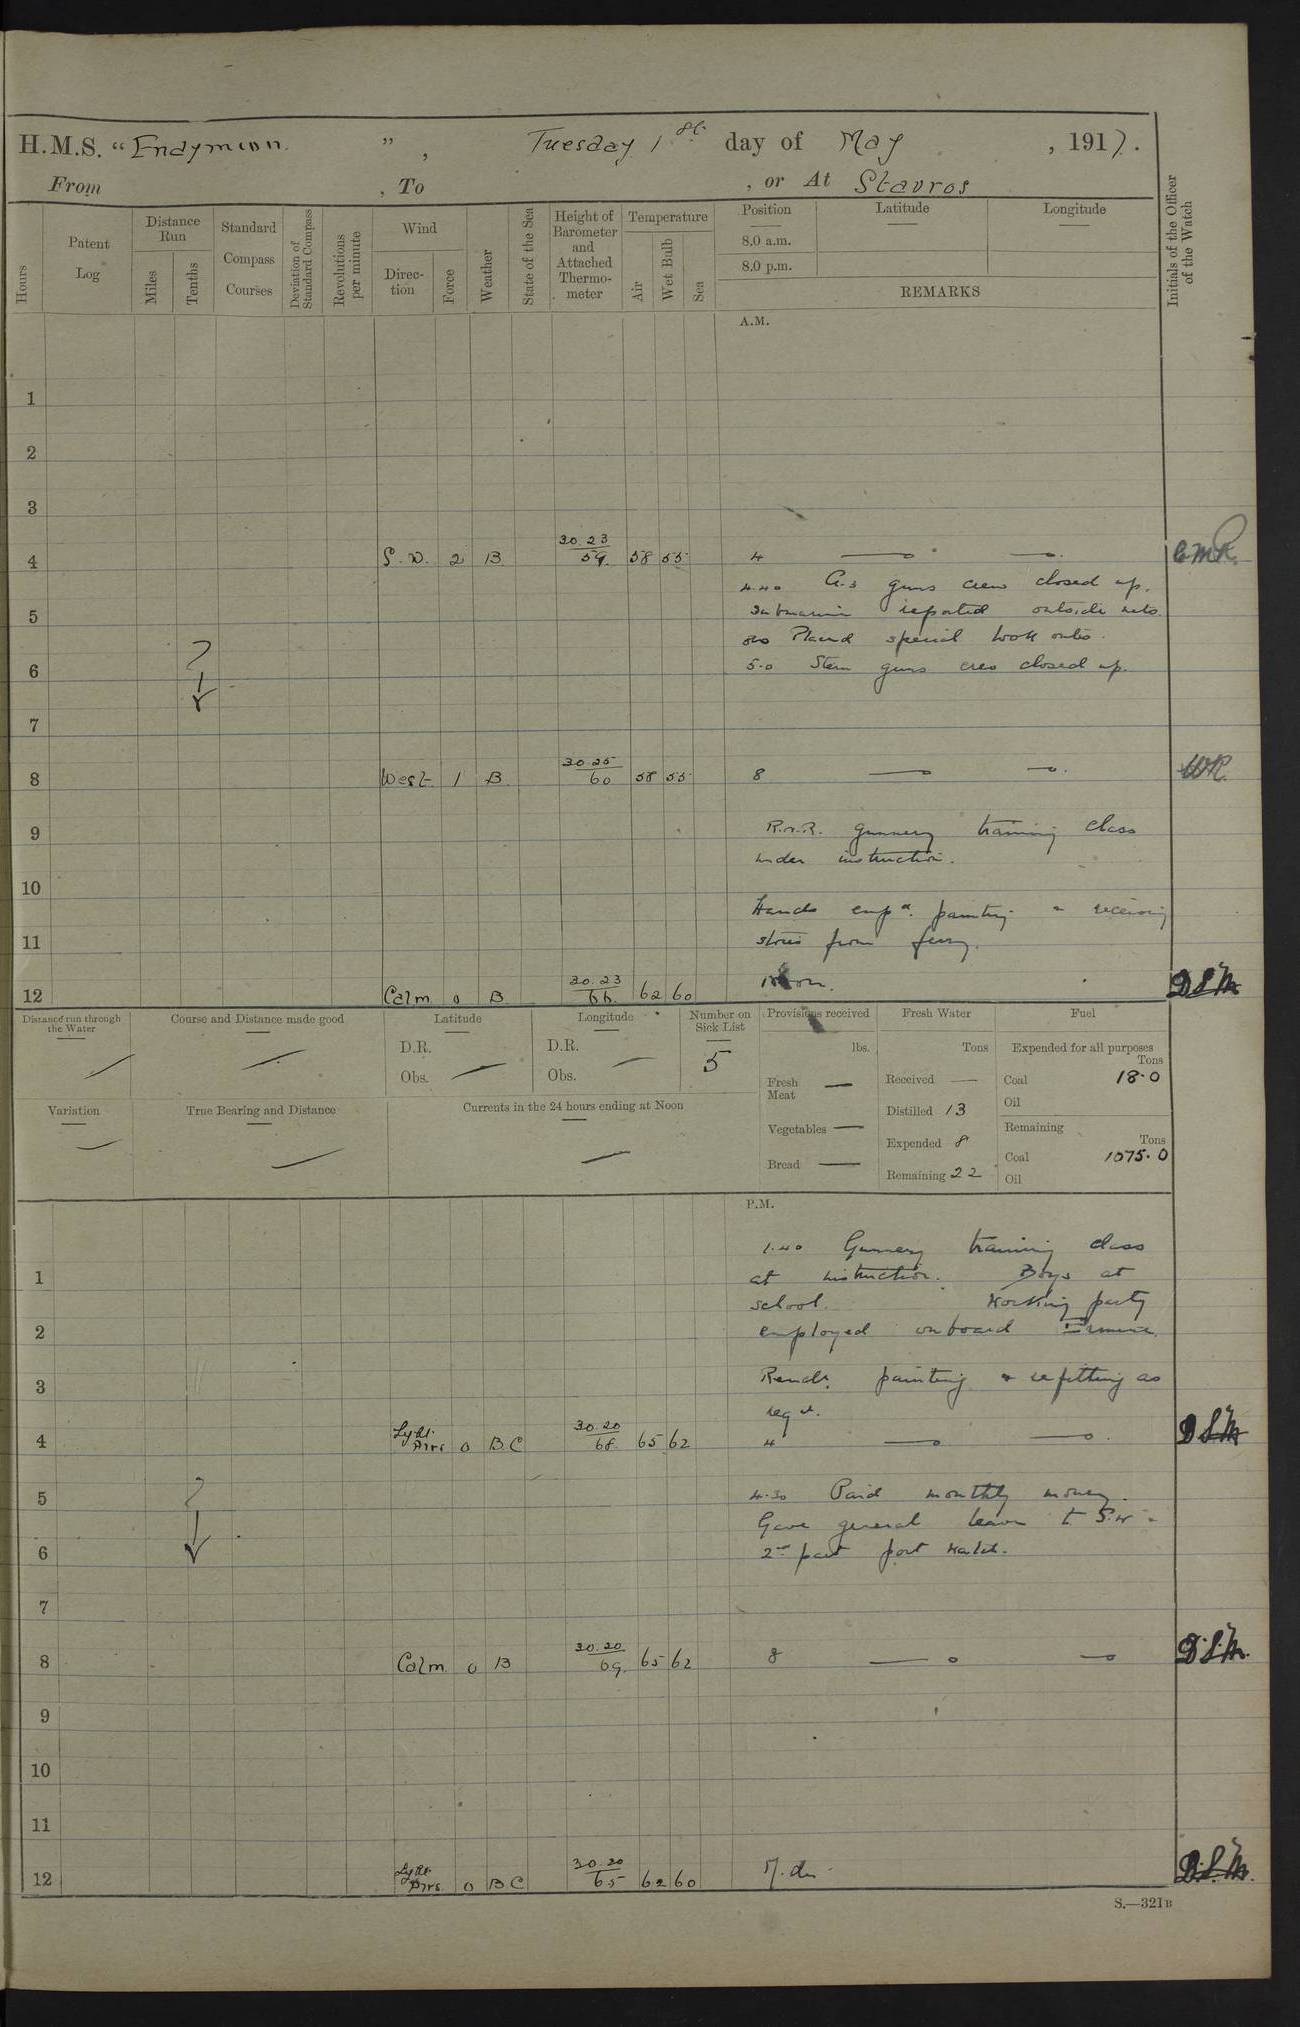 H.M.S. "Endymion.", Tuesday 1st day of May, 1917.
From , To , or At Stavros
Hours
Patent Log
Distance Run
Miles
Tenths
Standard Compass Courses
Deviation of Standard Compass
Revolutions per minute
Wind
Direction
Force
Weather
State of the Sea
Height of Barometer and Attached Thermometer
Temperature
Air
Wet Bulb
Sea
Position
Latitude
Longitude
8.0 a.m.
8.0 p.m.
REMARKS
Initials of the Officer of the Watch
A.M.
1
2
3
4 S.W. 2 B 30.23 59. 58 55 4
4.40 guns crew closed up.
5 Submarine reported outside nets.
Placed special look outs.
6 5.0 Stern guns crew closed up.
7
8 West 1 B 30.25 60 58 55 8 WR.
9 R.N.R. gunnery training class
under instruction.
10
Hands empd. painting & receiving
11 stores from ferry.
12 Calm 0 B 30.23 66. 62 60 Noon. DSM
Distance run through the Water
Course and Distance made good
Latitude
D.R.
Obs.
Longitude
D.R.
Obs.
Number on Sick List
5
Provisions received
lbs.
Fresh Meat —
Vegetables —
Bread —
Fresh Water
Tons
Received —
Distilled 13
Expended 8
Remaining 22
Fuel
Expended for all purposes
Tons
Coal 18.0
Oil
Remaining
Tons
Coal 1075.0
Oil
Variation
True Bearing and Distance
Currents in the 24 hours ending at Noon
P.M.
1.40 Gunnery training class
1 at instruction. Boys at
school. Working party
2 employed onboard
3 Remdr. painting & refitting as
reqd.
4 Lght Airs 0 BC 30.20 68. 65 62 4 DSM
5 4.30 Paid monthly money.
Gave general leave to
6 2nd part port watch.
7
8 Calm 0 B 30.20 69. 65 62 8 D.S.M.
9
10
11
12 Lght Airs. 0 BC 30.20 65 62 60 D.S.M.
S.—321B